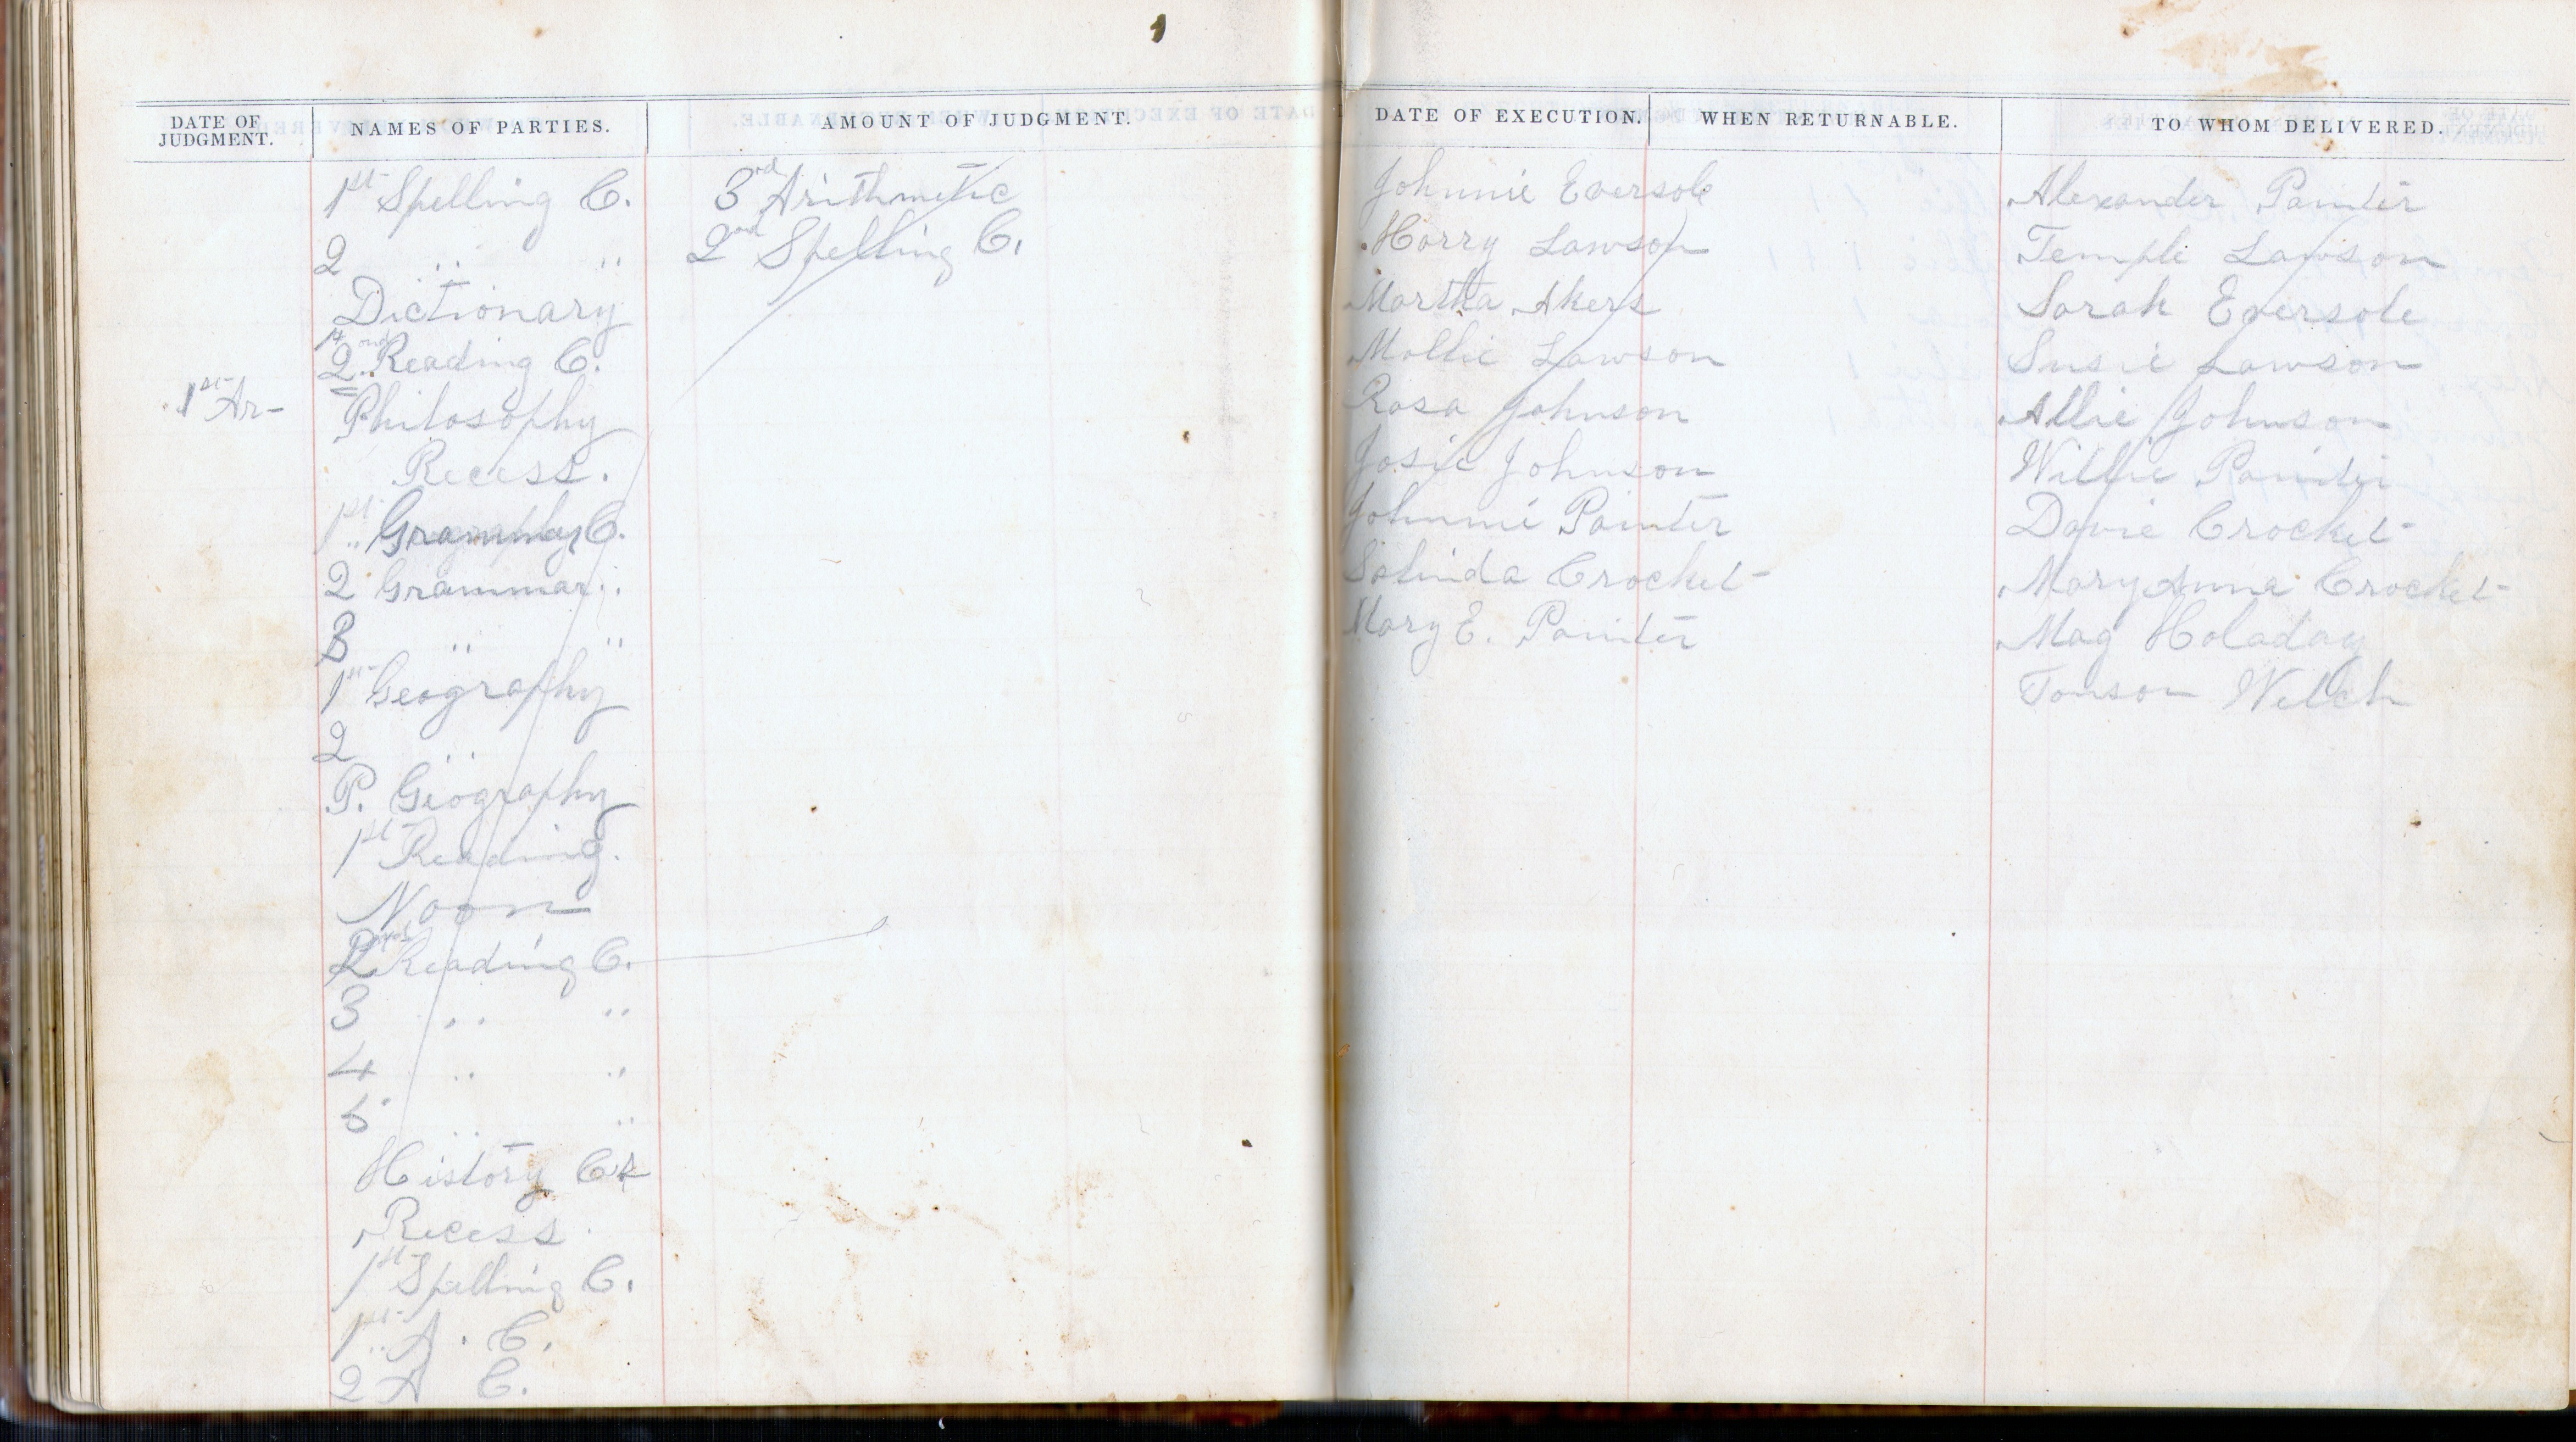 DATE OF JUDGMENT.
NAMES OF PARTIES.
AMOUNT OF JUDGMENT.
1st Spelling C.
2 " "
Dictionary
2nd Reading C.
1st Ar-
Philosophy
Recess.
1st C.
2 Grammar "
3 " "
1st Geography
2 "
P. Geography
1st Reading.
Noon
2nd Reading C.
3 " "
4 " "
5 " "
History C
Recess
1st Spelling C.
1st A. C.
2 A C.
3rd Arithmetic
2nd Spelling C.
DATE OF EXECUTION.
WHEN RETURNABLE.
TO WHOM DELIVERED.
Johnnie Eversole
Harry Lawson
Martha Akers
Mollie Lawson
Rosa Johnson
Josie Johnson
Johnnie Painter
Salinda Crocket
Mary E. Painter
Alexander Painter
Temple Lawson
Sarah Eversole
Susie Lawson
Allie Johnson
Willie Painter
Davie Crocket
Mary Anna Crocket
Mag Holaday
Tonson Welch